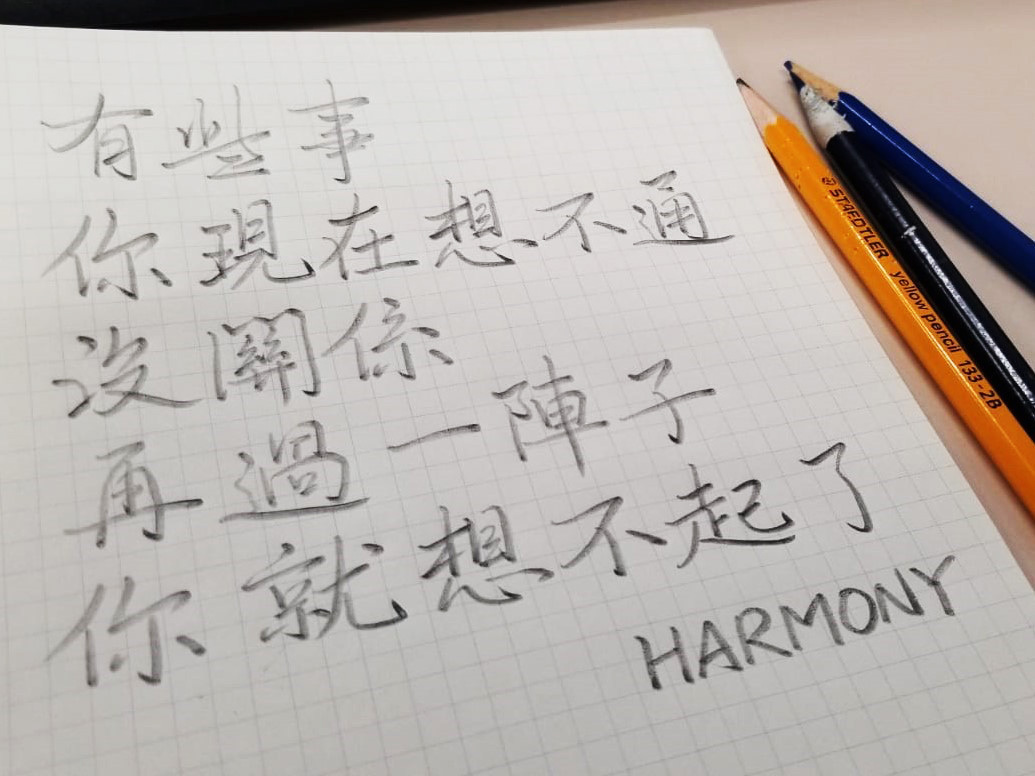 有些事
你現在想不通
沒關係
再過一陣子
你就想不起了
HARMONY
STAEDTLER yellow pencil 133-2B